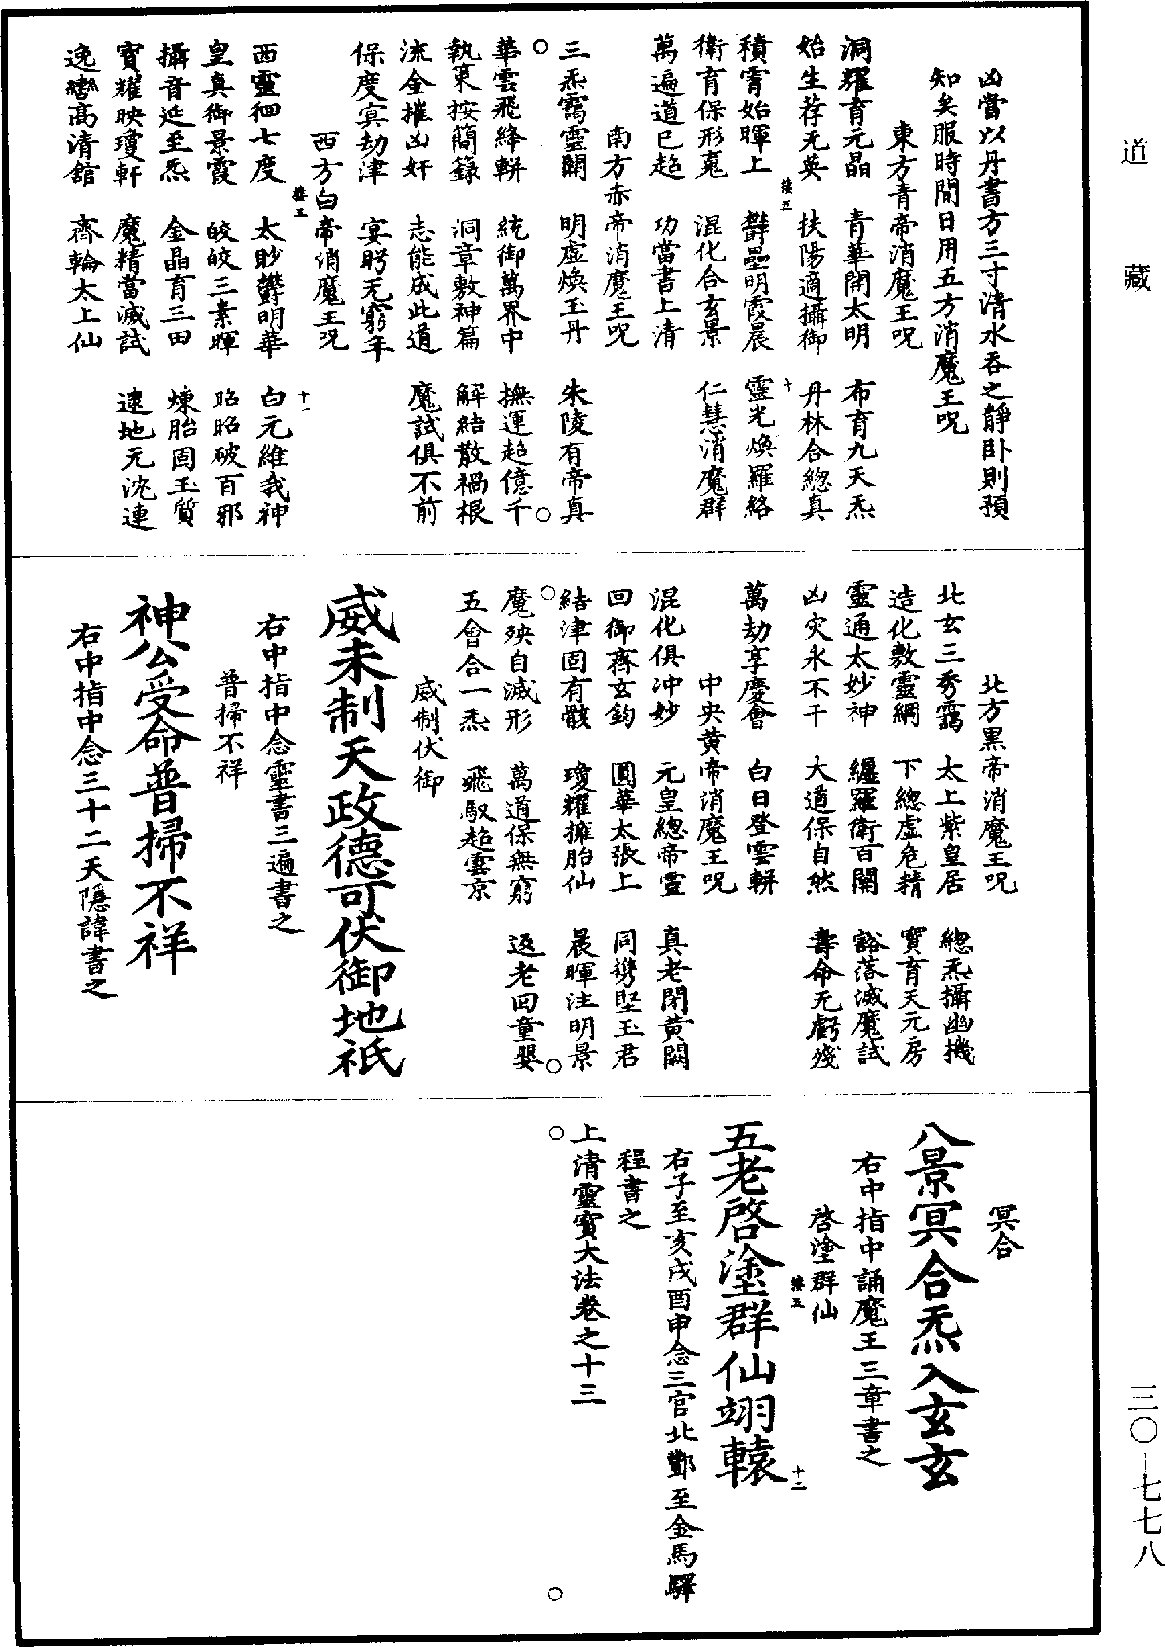 道藏
凶當以丹書方三寸清水吞之靜卧則預
知矣服時間日用五方消魔王呪
東方青帝消魔王呪
洞耀育元晶 青華開太明 布育九天炁
始生荐无英 扶陽適攝御 丹林合總真
積霄始暉上 欝壘明霞晨 靈光煥羅絡
衛育保形䰟 混化合玄景 仁慧消魔群
萬遍道已超 功當書上清
南方赤帝消魔王呪
三炁靄靈關 明虛煥玉丹 朱陵有帝真
華雲飛絳輧 統御萬界中 撫運超億千
執束按簡籙 洞章敷神篇 解結散禍根
流金摧凶奸 志能成此道 魔試俱不前
保度冥劫津 宴眄无窮年
西方白帝消魔王呪
西靈徊七度 太眇欝明華 白元維我神
皇真御景霞 皎皎三素暉 昭昭破百邪
攝音延至炁 金晶育三田 煉胎固玉質
寶耀映瓊軒 魔精當滅試 逮地元沈連
逸轡高清館 齊輪太上仙
北方黑帝消魔王呪
北玄三秀靄 太上紫皇居 總炁攝幽機
造化敷靈網 下總虛危精 寶育天元房
靈通太妙神 纏羅衛百關 豁落滅魔試
凶灾永不干 大道保自然 壽命无虧殘
萬劫享慶會 白日登雲輧
中央黄帝消魔王呪
混化俱冲妙 元皇總帝靈 真老閉黄闕
回御齊玄鈞 圓華太張上 同携墍玉君
結津固有骸 瓊耀擁胎仙 晨暉注明景
魔殃自滅形 萬道保無窮 返老回童嬰
五會合一炁 飛馭超雲京
威制伏御
威未制天政德可伏御地祇
右中指中念靈書三遍書之
普掃不祥
神公受命普掃不祥
右中指中念三十二天隱諱書之
冥合
八景冥合炁入玄玄
右中指中誦魔王三章書之
啓塗群仙
五老啓塗群仙翊轅
右子至亥戌酉申念三官北酆至金馬驛
程書之
上清靈寶大法卷之十三
三〇—七七八